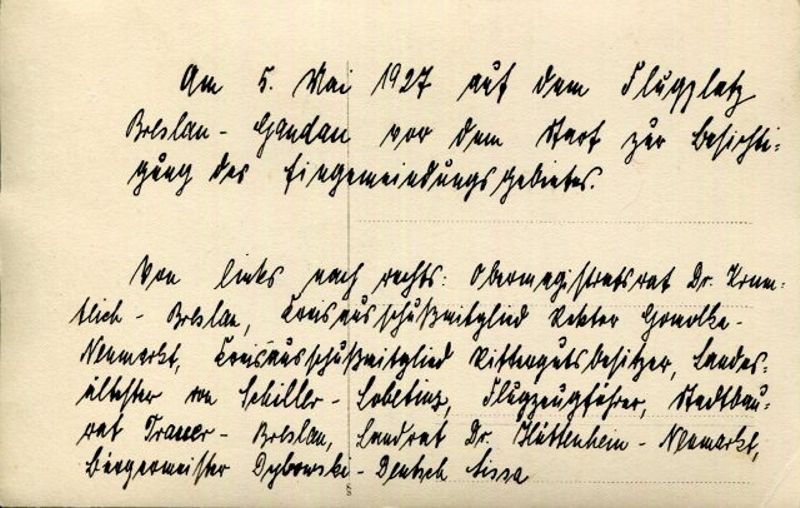 Am 5. Mai 1927 auf dem Flugplatz
Breslau - Gandau vor dem Start zur Besichti=
gung des Eingemeindungsgebietes.
Von links nach rechts: Obermagistratsrat Dr.
- Breslau, Kreisausschußmitglied Rektor Gomolka -
Neumarkt, Kreisausschußmitglied Rittergutsbesitzer, Landes=
ältester von Schiller - Lobetinz, Flugzeugführer, Stadtbau=
rat Trauer - Breslau, Landrat Dr. Hüttenhein - Neumarkt,
Bürgermeister Dybowski - Deutsch Lissa